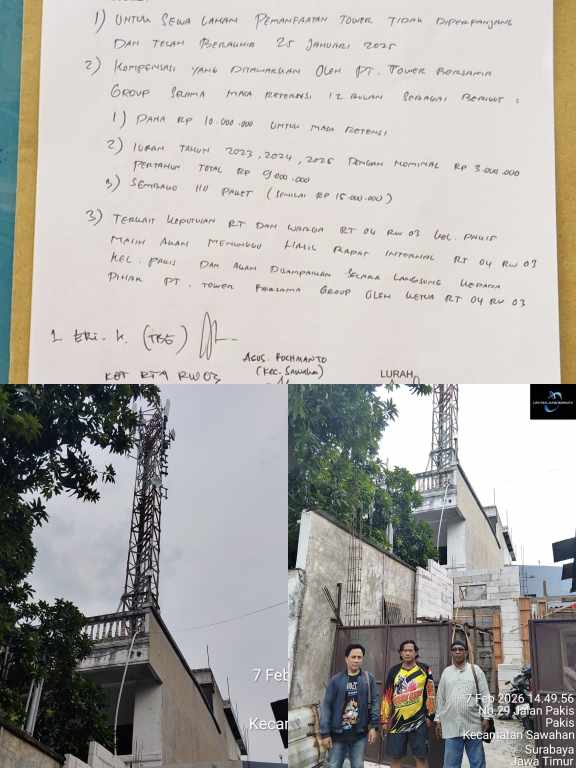 1) UNTUK SEWA LAHAN PEMANFAATAN TOWER TIDAK DIPERPANJANG
DAN TELAH BERAKHIR 25 JANUARI 2025
2) KOMPENSASI YANG DITAWARKAN OLEH PT. TOWER BERSAMA
GROUP SELAMA MASA RETENSI 12 BULAN SEBAGAI BERIKUT :
1) DANA RP 10.000.000 UNTUK MASA RETENSI
2) IURAN TAHUN 2023, 2024, 2025 DENGAN NOMINAL RP 3.000.000
PERTAHUN TOTAL RP 9.000.000
3) SEMBAKO 110 PAKET (SENILAI RP 15.000.000)
3) TERKAIT KEPUTUSAN RT DAN WARGA RT 04 RW 03 KEL. PAKIS
MASIH AKAN MENUNGGU HASIL RAPAT INTERNAL RT 04 RW 03
KEL. PAKIS DAN AKAN DISAMPAIKAN SECARA LANGSUNG KEPADA
PIHAK PT. TOWER BERSAMA GROUP OLEH KETUA RT 04 RW 03
1. ERI. K. (TBG)
AGUS. ROCHMANTO
(KEC. SAWAHAN)
KET RT 4 RW 03
LURAH
7 Feb
Kecam
7 Feb 2026 14.49.56
No.29 Jalan Pakis
Pakis
Kecamatan Sawahan
Surabaya
Jawa Timur